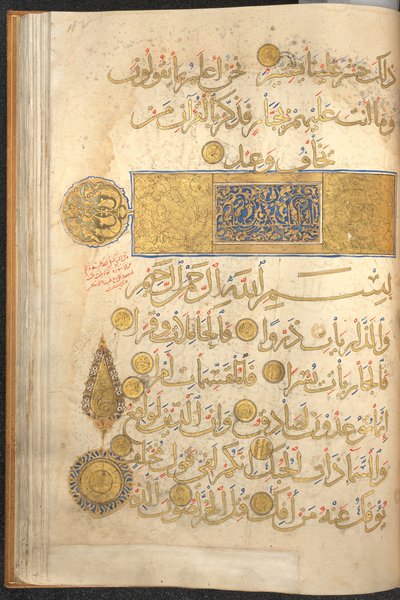 ذلك حشر علينا يسير نحن أعلم بما يقولون
وما أنت عليهم بجبار فذكر بالقرآن من
يخاف وعيد
بسم الله الرحمن الرحيم
والذاريات ذروا فالحاملات وقرا
فالجاريات يسرا فالمقسمات أمرا
إنما توعدون لصادق وإن الدين لواقع
والسماء ذات الحبك إنكم لفي قول مختلف
يؤفك عنه من أفك قتل الخراصون الذين